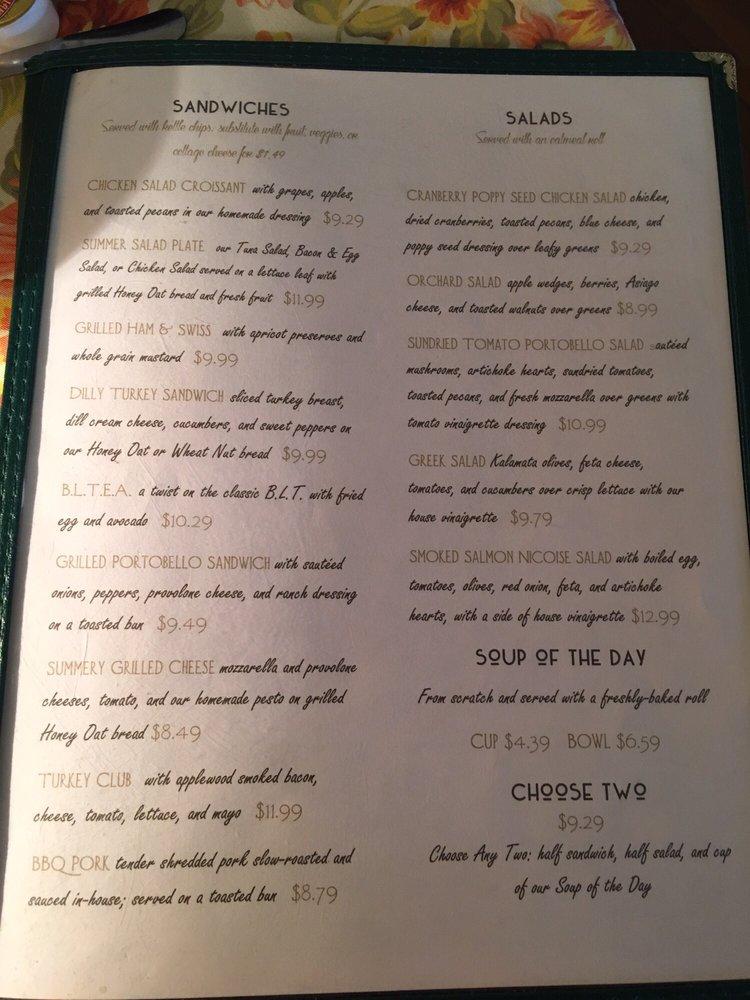 SANDWICHES
Served with kettle chips, substitute with fruit, veggies, or
cottage cheese for $1.49
CHICKEN SALAD CROISSANT with grapes, apples,
and toasted pecans in our homemade dressing $9.29
SUMMER SALAD PLATE our Tuna Salad, Bacon & Egg
Salad, or Chicken Salad served on a lettuce leaf with
grilled Honey Oat bread and fresh fruit $11.99
GRILLED HAM & SWISS with apricot preserves and
whole grain mustard $9.99
DILLY TURKEY SANDWICH sliced turkey breast,
dill cream cheese, cucumbers, and sweet peppers on
our Honey Oat or Wheat Nut bread $9.99
B.L.T.E.A. a twist on the classic B.L.T. with fried
egg and avocado $10.29
GRILLED PORTOBELLO SANDWICH with sautéed
onions, peppers, provolone cheese, and ranch dressing
on a toasted bun $9.49
SUMMERY GRILLED CHEESE mozzarella and provolone
cheeses, tomato, and our homemade pesto on grilled
Honey Oat bread $8.49
TURKEY CLUB with applewood smoked bacon,
cheese, tomato, lettuce, and mayo $11.99
BBQ PORK tender shredded pork slow-roasted and
sauced in-house; served on a toasted bun $8.79
SALADS
Served with an oatmeal roll
CRANBERRY POPPY SEED CHICKEN SALAD chicken,
dried cranberries, toasted pecans, blue cheese, and
poppy seed dressing over leafy greens $9.29
ORCHARD SALAD apple wedges, berries, Asiago
cheese, and toasted walnuts over greens $8.99
SUNDRIED TOMATO PORTOBELLO SALAD sautéed
mushrooms, artichoke hearts, sundried tomatoes,
toasted pecans, and fresh mozzarella over greens with
tomato vinaigrette dressing $10.99
GREEK SALAD Kalamata olives, feta cheese,
tomatoes, and cucumbers over crisp lettuce with our
house vinaigrette $9.79
SMOKED SALMON NICOISE SALAD with boiled egg,
tomatoes, olives, red onion, feta, and artichoke
hearts, with a side of house vinaigrette $12.99
SOUP OF THE DAY
From scratch and served with a freshly-baked roll
CUP $4.39 BOWL $6.59
CHOOSE TWO
$9.29
Choose Any Two: half sandwich, half salad, and cup
of our Soup of the Day